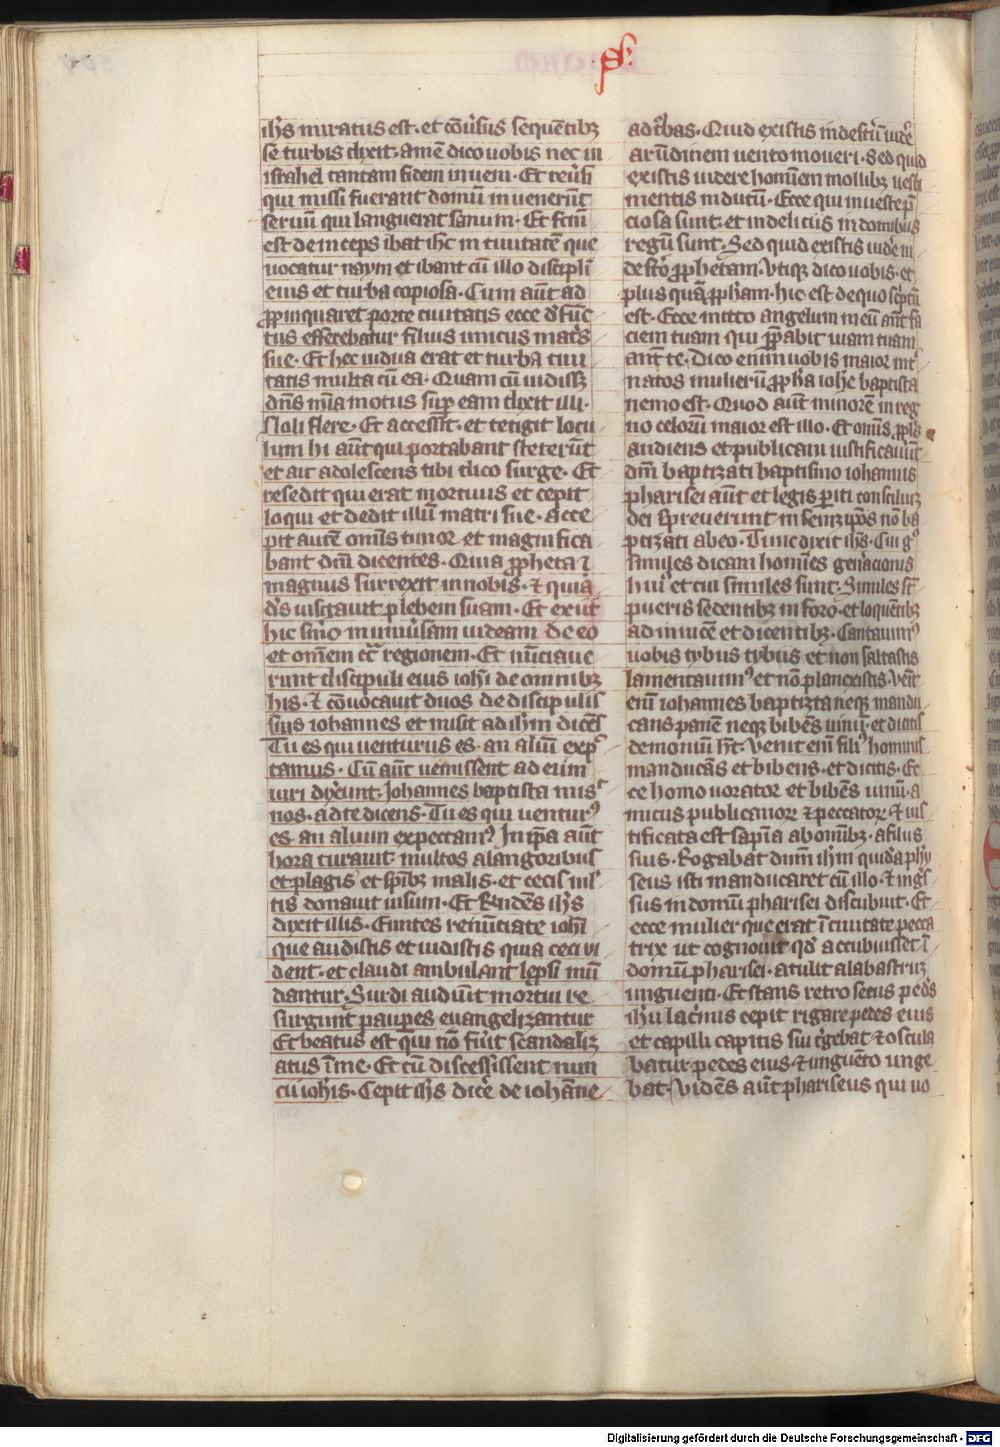 S̃.
ih̅s miratus est. et cōu̓sus sequētibꝫ
se turbis dixit. amē dico uobis nec in
israhel tantam fidem inueni. Et reu̓si
qui missi fuerant domū inuenerūt
seruū qui languerat sanum. Et fcm̄
est deinceps ibat ihc̅ in ciuitatē que
uocatur naym et ibant cū illo discipli
eius et turba copiosa. Cum aūt ad
ꝓpinquaret porte ciuitatis ecce d̓fūc
tus efferebatur filius unicus mat̓s
sue. Et hec uidua erat et turba ciui
tatis multa cū ea. Quam cū uidissꝫ
dn̄s mīa motus suꝑ eam dixit illi.
Noli flere. Et accessit. et tetigit locu
lum hi aūt qui portabant steterūt
et ait adolescens tibi dico surge. Et
resedit qui erat mortuus et cepit
loqui et dedit illum matri sue. acce
pit autē omīs timor et magnifica
bant dn̄m dicentes. Quia ꝓpheta
magnus surrexit in nobis. ⁊ quia
d̓s uisitauit plebem suam. Et exiit
hic sm̓o in uniu̓sam iudeam de eo
et omēm ec̄ regionem. Et nūciaue
runt discipuli eius ioh̅i de omnibꝫ
his. ⁊ cōuocauit duos de discipulis
suis iohannes et misit ad ih̅m dicēs
Tu es qui uenturus es. an aliū exp̄c
tamus. Cū aūt uenissent ad eum
uiri dix̓unt. Johannes baptista mis̓
nos. ad te dicens. Tu es qui uenturꝰ
es. an alium expectamꝰ. In ip̄a aūt
hora curauit multos a langoribus
et plagis et sp̄ibꝫ malis. et cecis mul̓
tis donauit uisum. Et Rn̄dēs ih̅s
dixit illis. Euntes renūciate ioh̅i
que audistis et uidistis quia ceci vi
dent. et claudi ambulant lep̄si mū
dantur. Surdi audiūt mortui re
surgunt paupes euangelizantur
Et beatus est qui nō fu̓it scandaliz
atus ī me. Et cū discessissent nun
cii ioh̅is. Cepit ih̅s dic̓e de iohāne
ad t̓bas. Quid existis in des̓tū uid̓e
arūdinem uento moueri. Sed quid
existis uidere homīem mollibꝫ uesti
mentis indutū. Ecce qui in ueste p̄
ciosa sunt. et in deliciis in domibus
regū sunt. Sed quid existis uid̓e in
des̓to ꝓphetam. Vtiqꝫ dico uobis. et
plus quā ꝓph̅am. hic est de quo sc̓ptū
est. Ecce mitto angelum meū aūt fa
ciem tuam qui p̄p̄abit uiam tuam
ant̄ te. Dico enim uobis maior int̓
natos mulierū ꝓph̅a ioh̅e baptista
nemo est. Quod aūt minorē in reg
no celorū maior est illo. Et omīs ꝓpl̅s
audiens et publicani iustificauer̄t
dm̄ baptizati baptismo iohannis
pharisei aūt et legis ꝑiti consiliuꝫ
dei spreuerunt in semꝫip̄os nō ba
ptizati ab eo. Tunc dixit ih̅s. Cui g̊
similes dicam homīes gen̓acionis
huiꝰ et cui similes sunt. Similes st̄
pueris sedentibꝫ in foro. et loquētibꝫ
adinuicē et dicentibꝫ. Cantauimꝰ
uobis tybus tybus et non saltastis
lamentauimꝰ et nō planxistis. Venīt
enī iohannes baptizta neqꝫ mandu
cans panē neqꝫ bibēs uinū. et dicitis
demoniū h̅t. Venit enī filiꝰ hominis
manducās et bibens. et dicitis. Ec
ce homo uorator et bibēs uinū. a
micus publicanoꝝ ⁊ peccatoꝝ. ⁊ ius
tificata est sapīa ab om̄ibꝫ. a filiis
suis. Rogabat dum̄ ih̅m quida phy
seus isti manducaret cū illo. ⁊ ing̓s
sus in domū pharisei discubuit. Et
ecce mulier que erat ī ciuitate pecca
trix ut cognouit qd̓ accubuisset ī
domū pharisei. atulit alabastruꝫ
unguenti. Et stans retro secus ped̓s
ih̅u lac̓mis cepit rigare pedes eius
et capilli capitis sui t̓gebat. ⁊ oscula
batur pedes eius. ⁊ unguēto unge
bat. Vidēs aūt phariseus qui uo
Digitalisierung gefördert durch die Deutsche Forschungsgemeinschaft - DFG